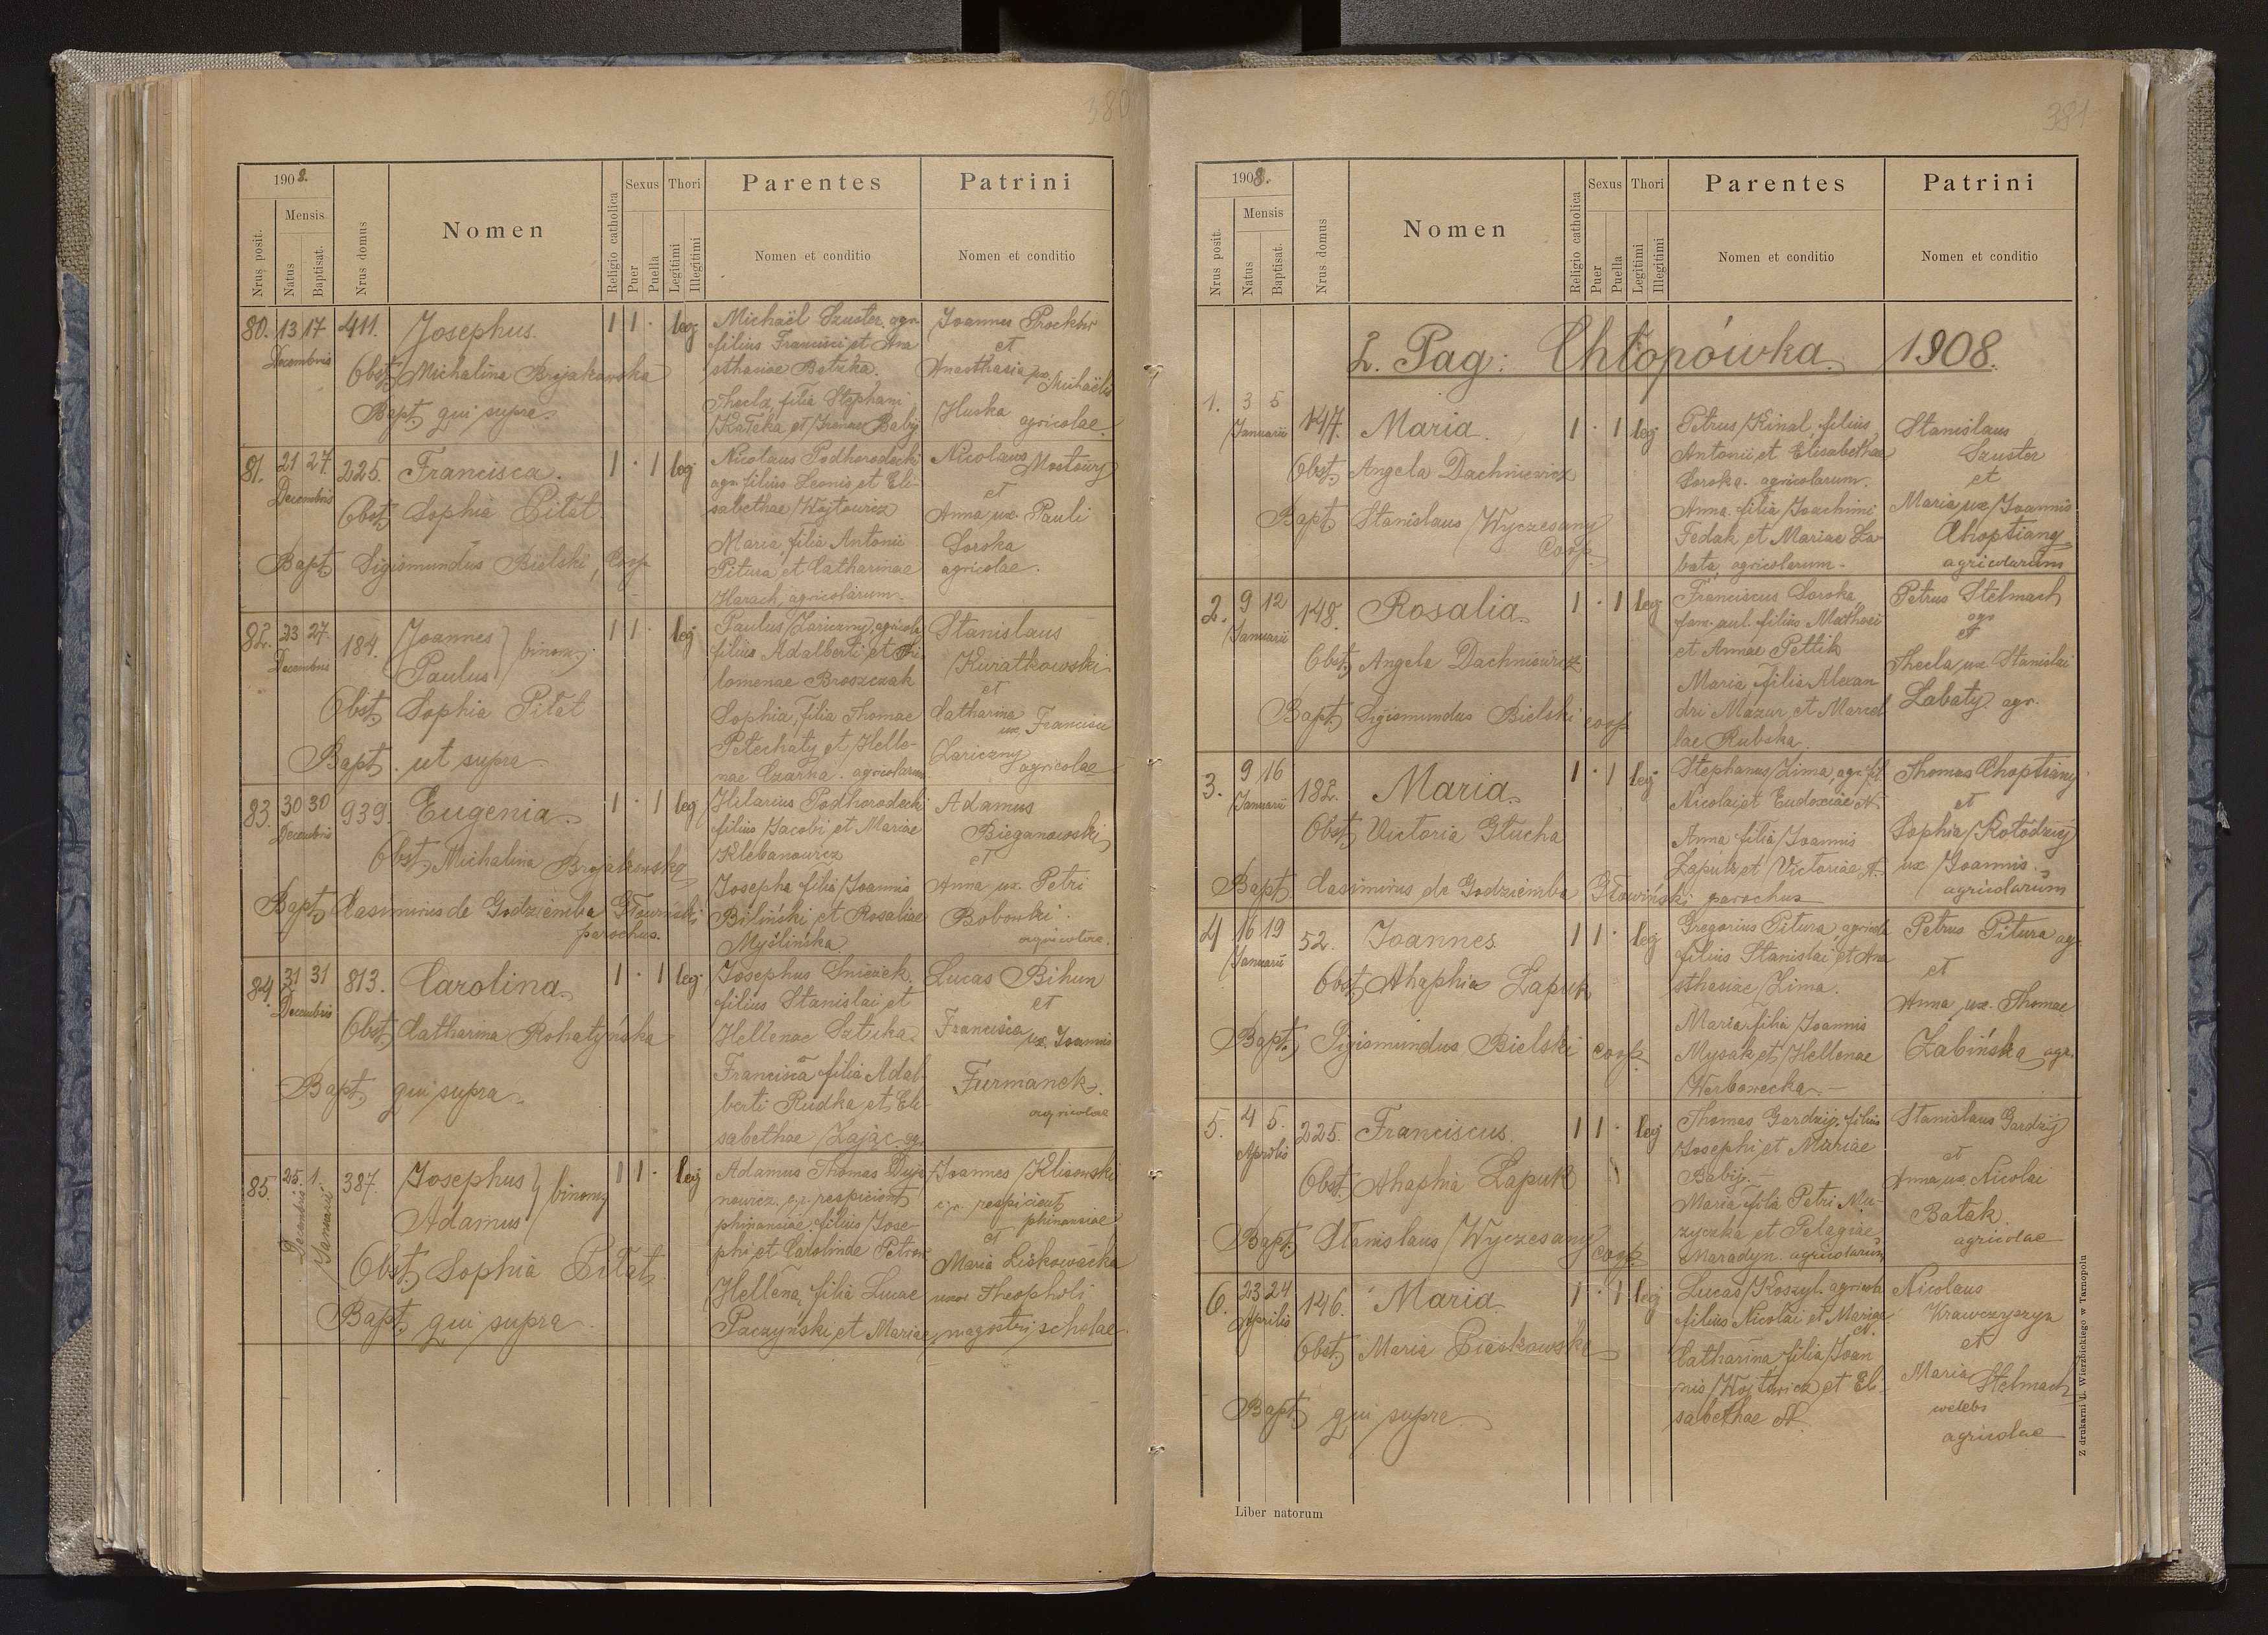 380
1908.
Nrus posit.
Mensis
Natus
Baptisat.
Nrus domus
Nomen
Religio catholica
Sexus
Puer
Puella
Thori
Legitimi
Illegitimi
Parentes
Nomen et conditio
Patrini
Nomen et conditio
80. 13 17 411. Josephus. 1 1 · leg
Decembris
Obst. Michalina Brojakowska
Bapt. qui supra.
Michaël Szuster agr.
filius Francisci et Ana
sthasiae
Thecla filia Stephani
et Irenae Babij
Joannes
et
Anasthasia ux. Michaëlis
Huska agricolae.
81. 21 27. 225. Francisca. 1 · 1 leg
Decembris
Obst. Sophia Pitat
Bapt. Sigismundus Bielski, Coop
Nicolaus Podhorodecki
agr. filius Leonis et Eli-
sabethae Wojtowicz
Maria, filia Antonii
Pitura et Catharinae
Harach, agricolarum.
Nicolaus Mostowy
et
Anna ux. Pauli
Soroka
agricolae.
82. 23 27. 184. Joannes } binom.
Decembris
Paulus
1 1 · leg
Obst. Sophia Pitat
Bapt. ut supra
Paulus Zariczny agricola
filius Adalberti et Phi
lomenae Broszczak
Sophia, filia Thomae
Petechaty et Helle-
nae Czarna. agricolarum
Stanislaus
Kwiatkowski
et
Catharina ux. Francisci
Zariczny agricolae
83. 30 30 939. Eugenia. 1 · 1 leg
Decembris
Obst. Michalina Brojakowska
Bapt. Casimirus de Godziemba Głowiński
parochus.
Hilarius Podhorodecki
filius Jacobi et Mariae
Klebanowicz
Josepha filia Joannis
Biliński et Rosaliae
Myślińska
Adamus
Bieganowski
et
Anna ux. Petri
Bobowki.
agricolae.
84. 31 31 813. Carolina. 1 · 1 leg
Decembris
Obst. Catharina Rohatyńska
Bapt. qui supra.
Josephus
filius Stanislai et
Hellenae
Francisca filia Adal-
berti Rudka et Eli-
sabethae Zając agr.
Lucas Bihun
et
Francisca ux. Joannis
Furmanek.
agricolae
85. 25. 1. 387. Josephus } binomg
Decembris Januarii
Adamus
1 1 · leg
Obst. Sophia Pitat.
Bapt. qui supra.
Adamus Thomas
nowicz. c.r. respicient
phinansiae, filius Jose-
phi et Carolinae
Hellena, filia Lucae
Paczyński et Mariae
Joannes Klisowski
c.r. respicient
phinansiae
et
Maria Liskowacka
uxor Theophili
magistri scholae.
381
1908.
Nrus posit.
Mensis
Natus
Baptisat.
Nrus domus
Nomen
Religio catholica
Sexus
Puer
Puella
Thori
Legitimi
Illegitimi
Parentes
Nomen et conditio
Patrini
Nomen et conditio
2. Pag: Chłopówka. 1908.
1. 3 5 147. Maria. 1 · 1 leg
Januarii
Obst. Angela Dachniewicz
Bapt. Stanislaus Wyczesany
Coop.
Petrus Kinal filius
Antonii et Elisabethae
Soroka. agricolarum.
Anna filia Joachimi
Fedak et Mariae La-
bata agricolarum.
Stanislaus
Szuster
et
Maria ux Joannis
Choptiany
agricolarum
2. 9 12 148. Rosalia. 1 · 1 leg
Januarii
Obst. Angela Dachniewicz
Bapt. Sigismundus Bielski coop.
Franciscus Soroka
fam. aul. filius Mathaei
et Annae Pettik
Maria filia Alexan
dri Mazur et Marcel
lae Rubska.
Petrus Stelmach
agr
et
Thecla ux Stanislai
Labaty agr.
3. 9 16 182. Maria. 1 · 1 leg
Januarii
Obst. Victoria Głucha
Bapt. Casimirus de Godziemba Głowiński parochus
Stephanus Zima, agr. fil.
Nicolai et Eudoxiae N.
Anna filia Joannis
Łapuk et Victoriae N.
Thomas Choptiany
et
Sophia Kołodziej
ux Joannis.
agricolarum
4 16 19 52. Joannes 1 1 · leg
Januarii
Obst. Ahaphia Łapuk
Bapt. Sigismundus Bielski coop.
Gregorius Pitura, agricola
filius Stanislai et Ana
sthasiae Zima.
Maria filia Joannis
Mysak et Hellenae
Werbowecka
Petrus Pitura agr.
et
Anna ux. Thomae
Żabińska agr.
5. 4 5. 225. Franciscus. 1 1 · leg
Aprilis
Obst. Ahaphia Łapuk
Bapt. Stanislaus Wyczesany coop.
Thomas Gardzij filius
Josephi et Mariae
Babij.
Maria filia Petri Mu-
zyczka et Pelagiae
Maradyn. agricolarum
Stanislaus Gardzij
et
Anna ux Nicolai
Batak
agricolae
6. 23 24 146. Maria. 1 · 1 leg
Aprilis
Obst. Maria
Bapt. qui supra
Lucas Koszyl. agricola
filius Nicolai et Mariae
N.
Catharina filia Joan
nis Wojtowicz et El-
sabethae N.
Nicolaus
Krawczyszyn
et
Maria Stelmach
coelebs
agricolae
Liber natorum
Z drukarni L. Wierzbickiego w Tarnopolu